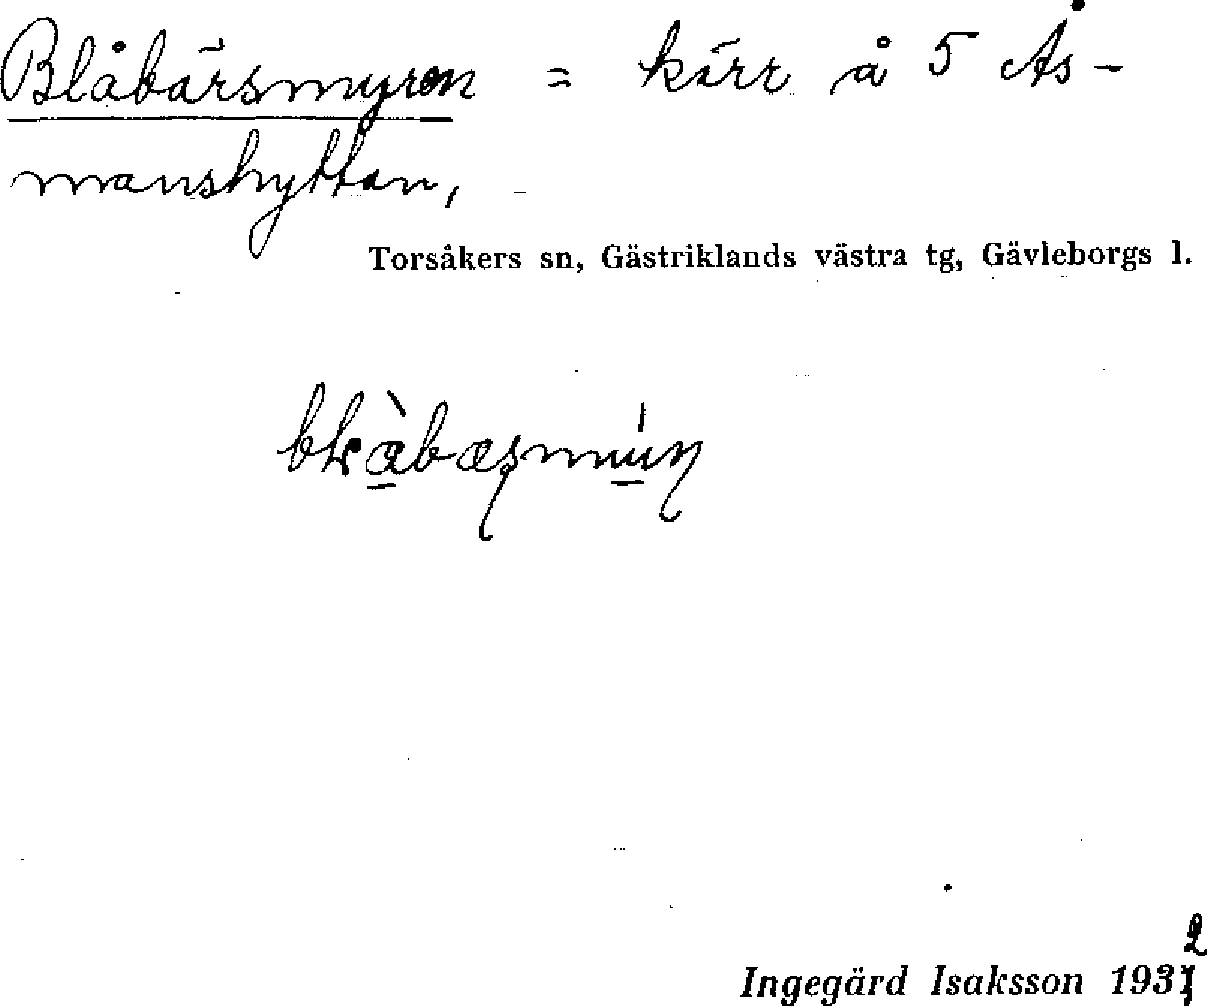 Blåbärsmyren = kärr å 5 Ås-
manshyttan,
Torsåkers sn, Gästriklands västra tg, Gävleborgs l.
2
Ingegärd Isaksson 1931